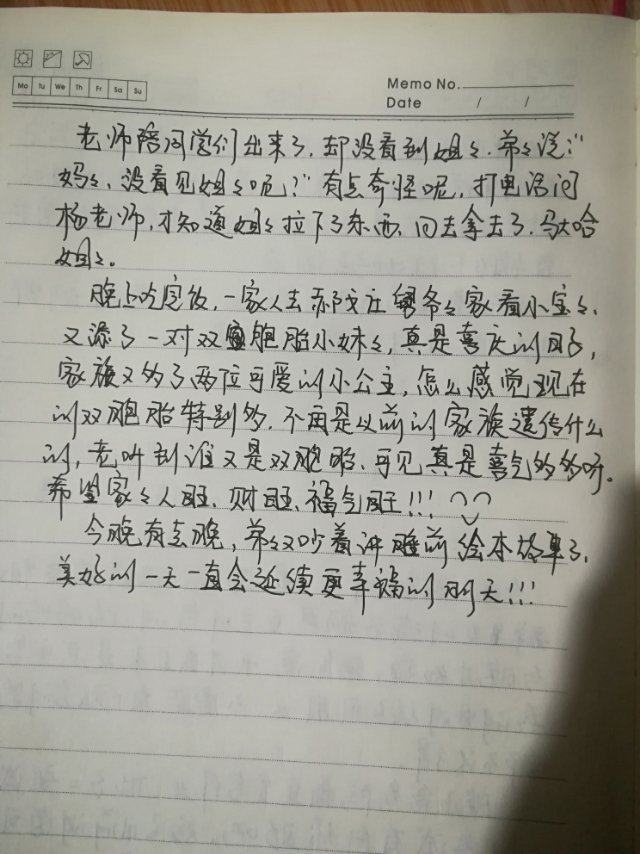 Mo Tu We Th Fr Sa Su
Memo No.
Date / /
老师陪同学们出来了,却没看到姐々.弟々说:“
妈々,没看见姐々呢?”有点奇怪呢,打电话问
杨老师,才知道姐々拉下了东西,回去拿去了.马大哈
姐々。
晚上吃完饭,一家人去 爷々家看小宝々,
又添了一对双胞胎小妹々,真是喜庆的日子,
家族又多了两位可爱的小公主,怎么感觉现在
的双胞胎特别多.不再是以前的家族遗传什么
的,竟听到谁又是双胞胎,可见真是喜气多多呀。
希望家々人旺、财旺、福气旺!!!
今晚有点晚,弟々又吵着讲睡前绘本故事了,
美好的一天一直会延续更幸福的明天!!!